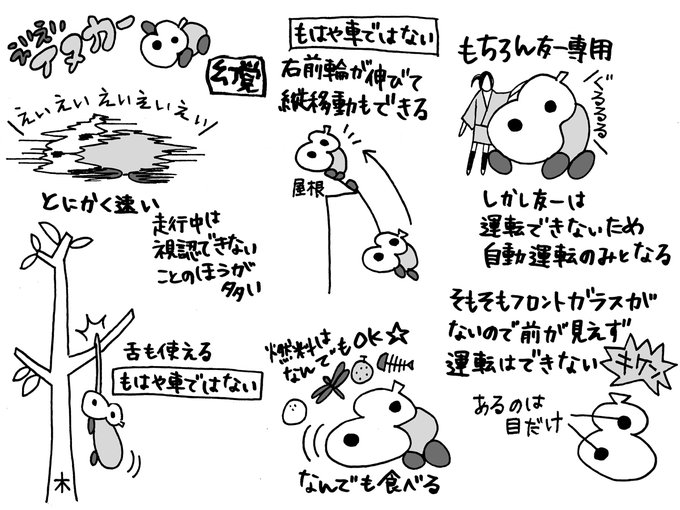 ぶいぶい
アヌカー
幻覚
えぃえぃえぃえぃえぃ
とにかく速い
走行中は
視認できない
ことのほうが
多い
舌も使える
もはや車ではない
木
もはや車ではない
右前輪が伸びて
縦移動もできる
屋根
燃料は
なんでもOK☆
なんでも食べる
もちろん友一専用
ぐるるる
しかし友一は
運転できないため
自動運転のみとなる
そもそもフロントガラスが
ないので前が見えず
運転はできない
キケン
あるのは
目だけ